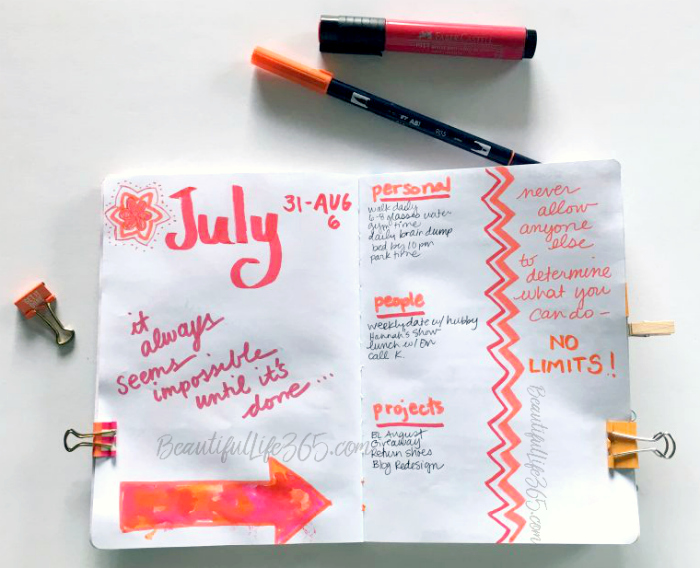 July
31-AUG
6
it
always
seems
impossible
until it's
done...
BeautifulLife365.com
personal
walk daily
6-8 glasses water
gym time
daily brain dump
bed by 10 pm
park time
people
weekly date w/ hubby
Hannah's Show
lunch w/ Erin
Call K.
projects
BL August
Giveaway
Return Shoes
Blog Redesign
never
allow
anyone
else
to
determine
what you
can do-
NO
LIMITS!
BeautifulLife365.com
FABER-CASTELL
ABT